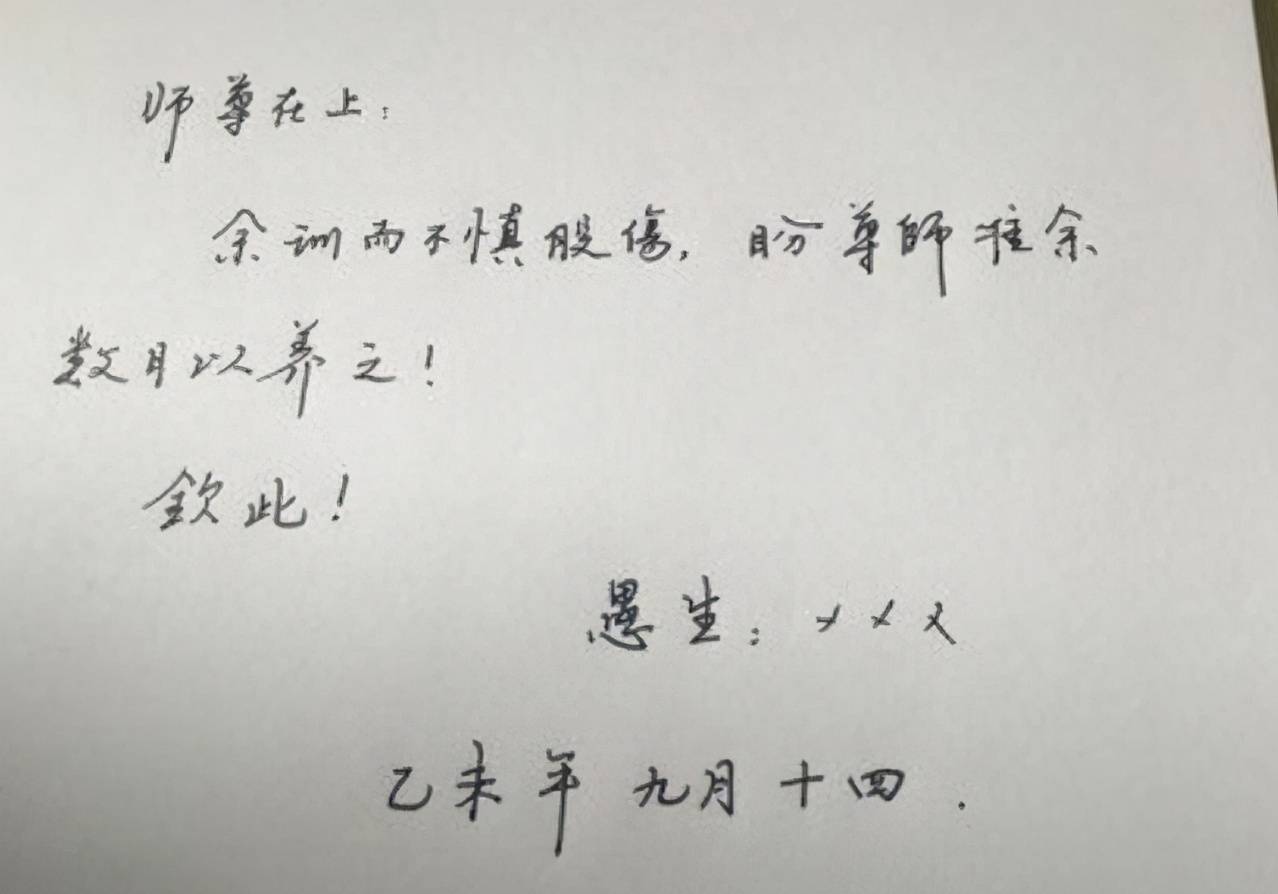 师尊在上：
余训而不慎股傷，盼尊師准余
数月以养之！
欽此！
愚生：×××
乙未年九月十四.